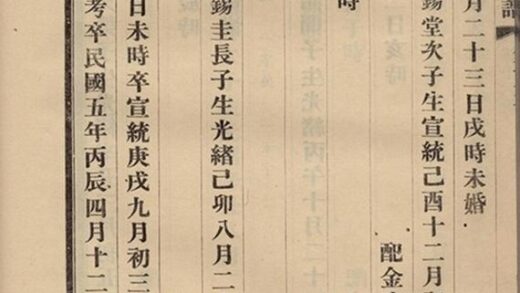 譜
月二十三日戌時未婚
錫堂次子生宣統己酉十二月
配金
時
錫圭長子生光緒己卯八月二
日未時卒宣統庚戌九月初三
考卒民國五年丙辰四月十二